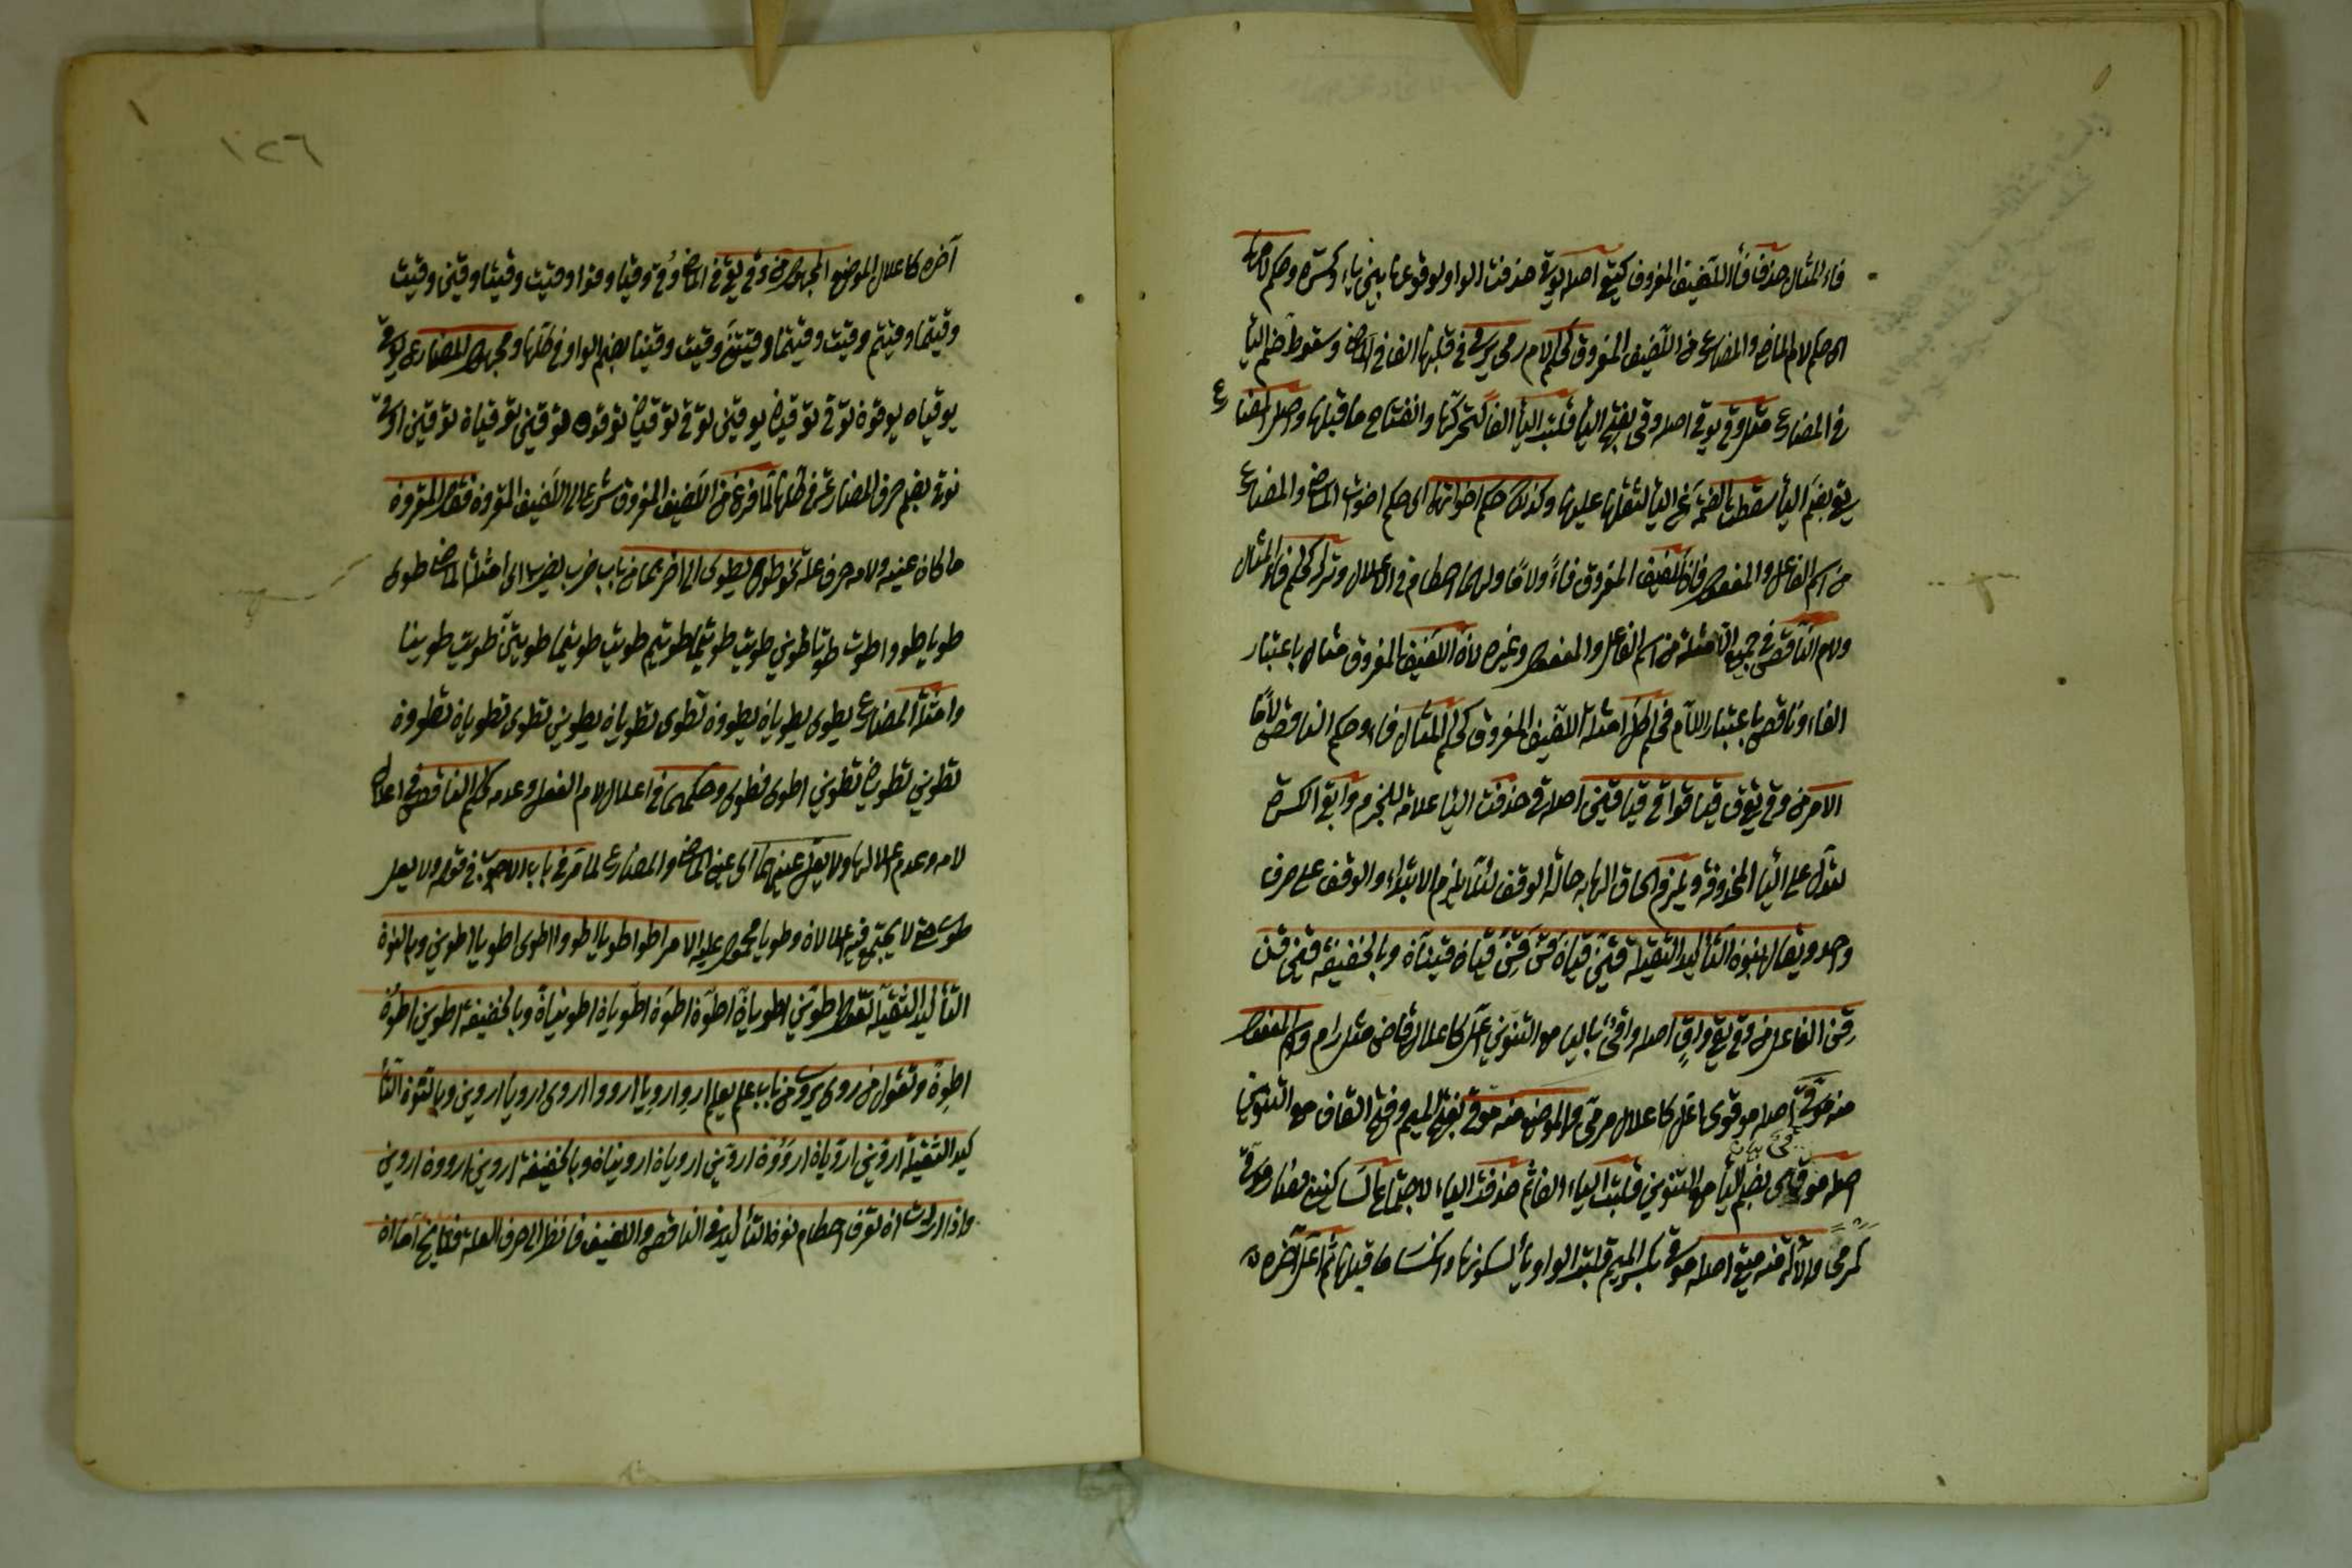 فاء المثال حذف فأ اللفيف المفروق كيقى اصله يوقى حذفت الواو لوقوعها بين ياء وكسرة وحكم لامهما
اى حكم لام الماض والمضارع من اللفيف المفروق كحكم لام رمى يرمى فى قلبها الفا فى الماض وسقوط ضم اليا
فى المضارع مثل وقى يوقى اصله وقى بفتح اليأ قلبت اليأ الفا لتحركها وانفتاح ما قبلها واصل المضارع
يقى بضم اليأ سقطت الضمة عن اليأ لثقلها عليها وكذلك حكم اخواتهما اى حكم اخوات الماض والمضارع
من اسم الفاعل والمفعول فان للفيف المفروق فاءً ولامًا ولهما احكام فى الاعلال وتركه كحكم فاء المثال
ولام الناقص فى جميع الامثلة من اسم الفاعل والمفعول وغيره لان اللفيف المفروق مثال باعتبار
الفاء وناقص باعتبار اللام فحكم كل امثلة اللفيف المفروق كحكم المثال فاء وحكم الناقص لامًا
الامر من وقى يقى ق قيا قوا قى قيا قين اصله قى حذفت اليا علامة للجزم وابقى الكسرة
لتدل على اليا المحذوفة ويلزم الحاق الها به حالة الوقف لئلا يلزم الابتداء والوقف على حرف
واحد ويقال بنون التأكيد الثقيلة قين قيان قن قن قيان قينان وبالخفيفة قين قن
قن الفاعل من وقى يقى واقٍ اصله واقى بالياء مع التنوين اعل كاعلال قاض مثل رام واسم المفعول
منه موقى اصله موقوى اعل كاعلال مرمى والموضع منه موقى بفتح الميم وفتح القاف مع التنوين
اصله موقى بضم اليأ مع التنوين قلبت الياء الفا ثم حذفت الياء لاجتماع الساكنين فصار موقى
كمرمى والالة منه ميقى اصله موقى بكسر الميم قلبت الواو يأ لسكونها وانكسار ما قبلها ثم اعل آخره
١٢٦
آخره كاعلال الموضع المجهول من وقى يقى فى الماض وُقى وقيا وقوا وقيت وقيتا وقين وقيت
وقيتما وقيتم وقيت وقيتما وقيتن وقيت وقينا بضم الواو فى كلها ومجهول المضارع يوقى
يوقيان يوقون توقى توقيان يوقين توقى توقيان توقون توقين توقيان توقين اوقى
نوقى بضم حرف المضارعة فى كلها لما فرغ من اللفيف المفروق شرع الى اللفيف المقرون فقال المقرون
ما كان عينه ولامه حرف علة نحو طوى يطوى الى اخرهما من باب ضرب يضرب اى امثلة الماض طوى
طويا طووا طوت طوتا طوين طويت طويتما طويتم طويت طويتما طويتن طويت طوينا
وامثلة المضارع يطوى يطويان يطوون تطوى تطويان يطوين تطوى تطويان تطوون
تطوين تطويان تطوين اطوى نطوى وحكمهما فى اعلال لام الفعل وعدمه كحكم الناقص فى اعلال
لامه وعدم اعلالها ولا يعل عينهما اى عين الماض والمضارع لما مر فى باب الاجوف فى قوله ولا يعل
طوى حتى لا يجتمع فيه اعلالان وطويا محمول عليه الامر اطو اطويا اطووا اطوى اطويا اطوين وبالنون
التأكيد الثقيلة تقول اطوين اطويان اطون اطون اطويان اطوينان وبالخفيفة اطوين اطون
اطون وتقول من روى يروى من باب علم يعلم ارو ارويا ارووا اروى ارويا اروين وبالنون التأ
كيد الثقيلة اروين ارويان ارؤون اروين ارويان اروينان وبالخفيفة اروين اروون اروين
واذا اردت ان تعرف احكام نون التأكيد فى الناقص واللفيف فانظر الى حرف العلة فى اخره ان